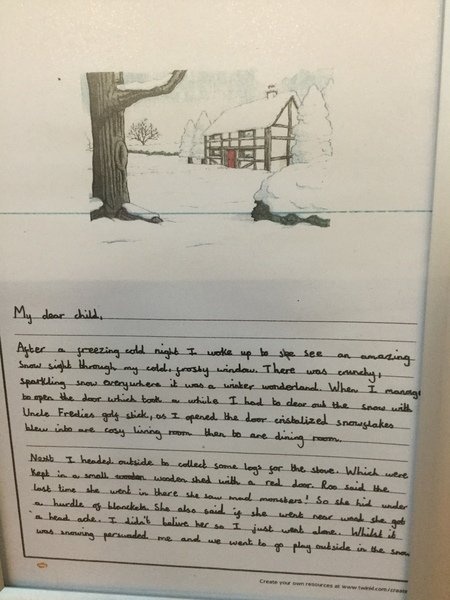 My dear child,
After a freezing cold night I woke up to see an amazing
Snow sight through my cold, frosty window. There was crunchy,
sparkling snow everywhere it was a winter wonderland. When I manage
to open the door which took a while I had to clear out the snow with
Uncle Fredies golf stick, as I opened the door cristalized snowflakes
blew into are cosy living room then to are dining room.
Next I headed outside to collect some logs for the stove. Which were
kept in a small wooden shed with a red door. Roo said the
last time she went in there she saw mad monsters! So she hid under
a hurdle of blanckets. She also said if she went near wood she got
a head ache. I didn't belive her so I just went alone. Whilst it
was snowing persuaded me and we went to go play outside in the snow
Create your own resources at www.twinkl.com/create